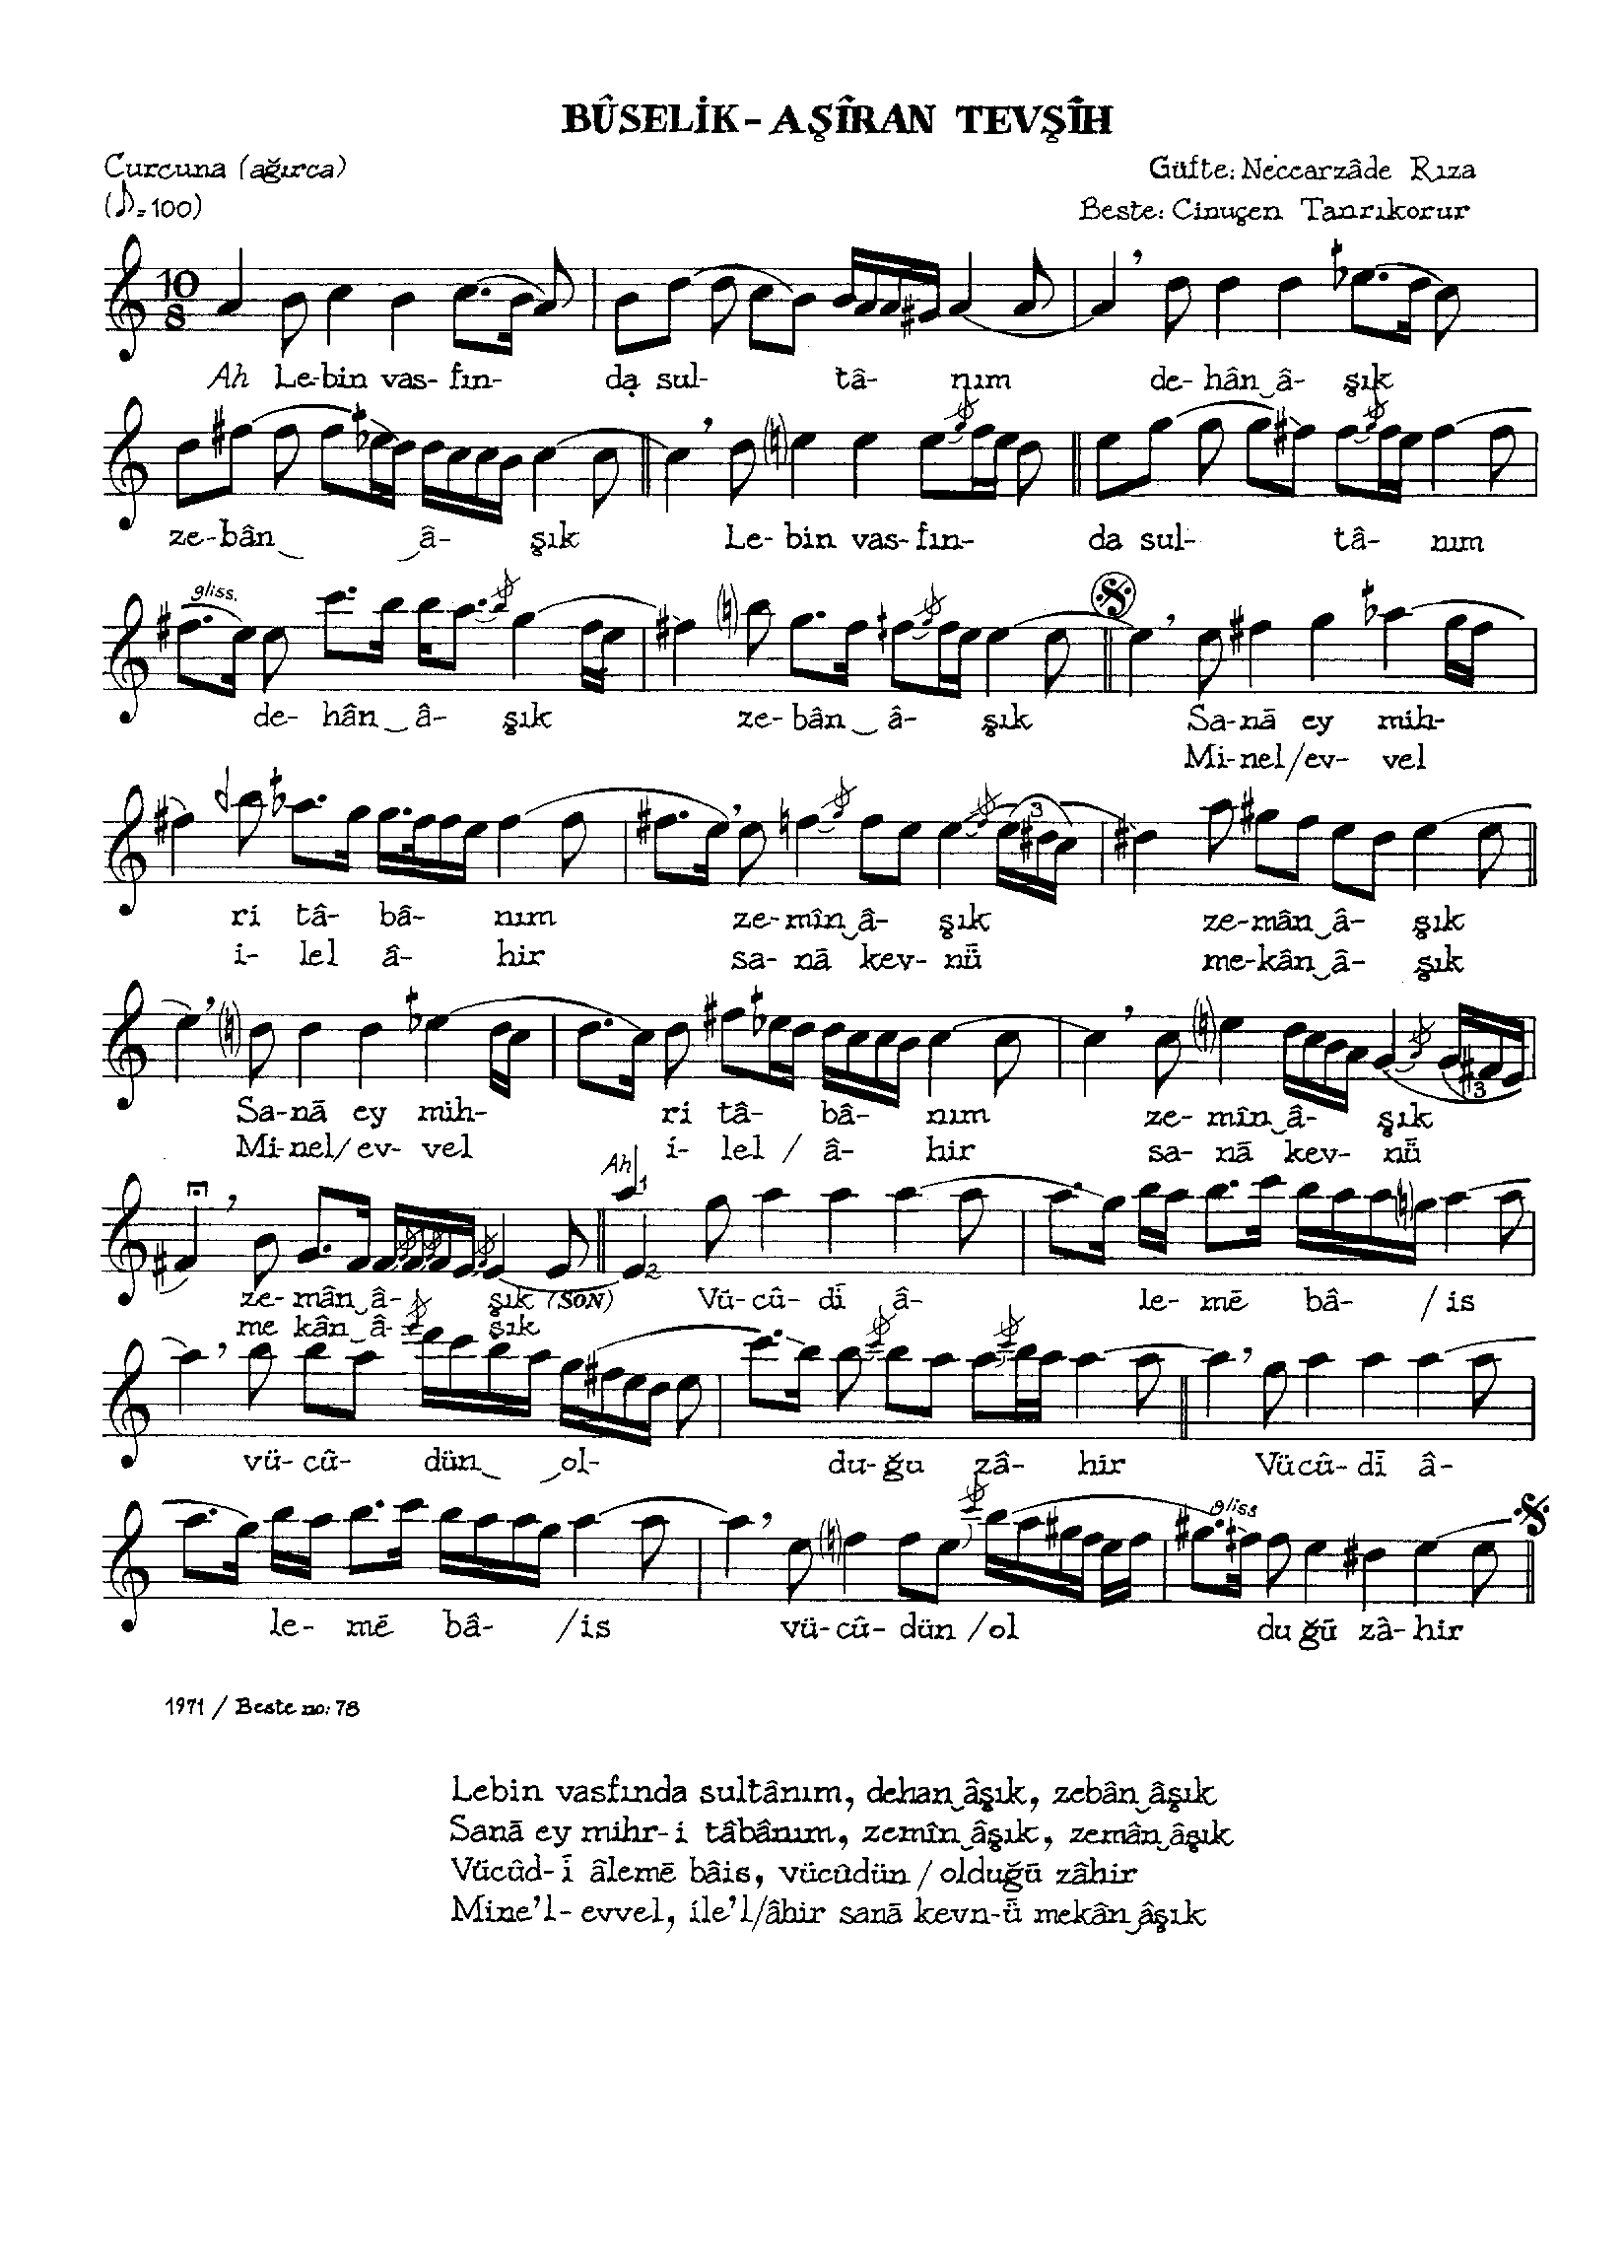 BÛSELİK - AŞÎRAN TEVŞÎH
Curcuna (ağırca)
Güfte: Neccarzâde Rıza
(♪=100)
Beste: Cinuçen Tanrıkorur
10
8
Ah Le-bin vas- fın- da sul- tâ- nım de- hân‿â- şık
ze-bân‿ ‿â- şık Le- bin vas-fın- da sul- tâ- nım
gliss.
de- hân‿â- şık ze- bân‿â- şık Sa-nā ey mih-
Mi-nel/ev- vel
3
ri tâ- bâ- nım ze-mîn‿â- şık ze-mân‿â- şık
i- lel â- hir sa- nā kev- nǖ me-kân‿â- şık
3
Sa-nā ey mih- ri tâ- bâ- nım ze- mîn‿â- şık
Mi-nel/ ev- vel i- lel / â- hir sa- nā kev- nǖ
Ah 1
2
ze- mân‿â- şık (SON) Vü-cû- dī â- le- mē bâ- / is
me kân‿â- şık
vü- cû- dün‿ ‿ol- du-ğu zâ- hir Vücû-dī â-
gliss
le- mē bâ- /is vü-cû- dün /ol du ğū zâ-hir
1971 / Beste no: 78
Lebin vasfında sultânım, dehan‿âşık, zebân‿âşık
Sanā ey mihr-i tâbânım, zemîn‿âşık, zemân‿âşık
Vücûd-ī âlemē bâis, vücûdün / olduğū zâhir
Mine'l- evvel, ile'l/âhir sanā kevn-ǖ mekân‿âşık